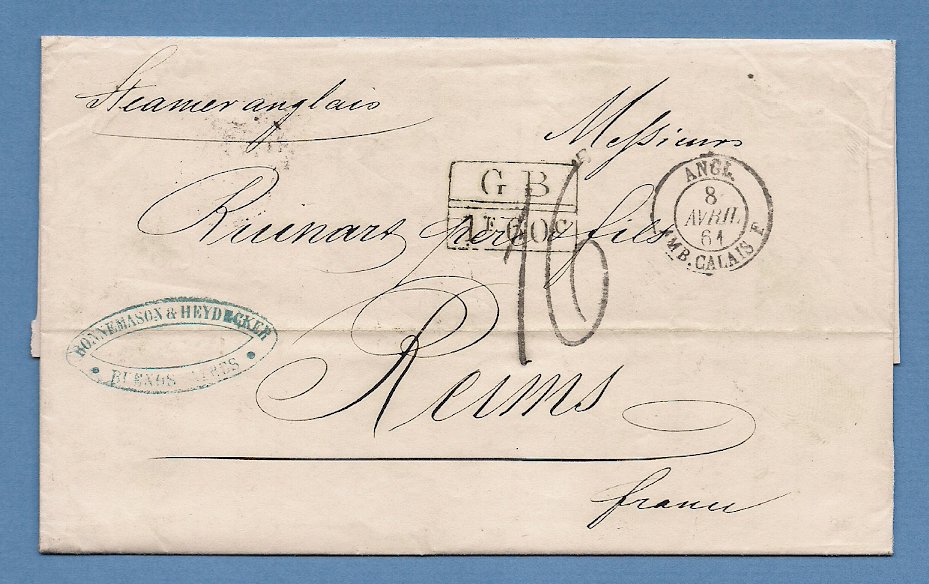 Steamer anglais
Messieurs
G B
1F 60c
16
ANGL.
8
AVRIL
61
AMB. CALAIS F
Ruinart père & fils
BONNEMASON & HEYDECKER
BUENOS AIRES
Reims
france